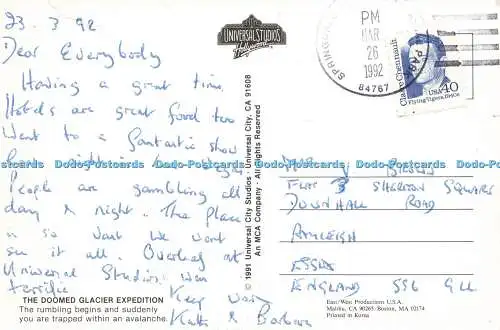 23 . 3 . 92
Dear Everybody
Having a great time.
Hotels are great food too
Went to a fantastic show
People are gambling all
day & night. The place
is so vast we wont
see it all. Overleaf at
Universal Studios was
terrific
Keep Well
Kath & Barbara
THE DOOMED GLACIER EXPEDITION
The rumbling begins and suddenly
you are trapped within an avalanche.
UNIVERSAL STUDIOS
Hollywood
© 1991 Universal City Studios • Universal City, CA 91608
An MCA Company • All Rights Reserved
PM
MAR
26
1992
84767
Claire Chennault
Flying Tigers, 1940s
USA 40
FLAT 3 SHERTON SQUARE
DOWNHALL ROAD
RAYLEIGH
ESSEX
ENGLAND SS6 9LL
East/West Productions U.S.A.
Malibu, CA 90265/Boston, MA 02174
Printed in Korea
Dodo-Postcards Dodo-Postcards Dodo-Postcards Dodo-Postcards Dodo-Postcards Dodo-Postcards